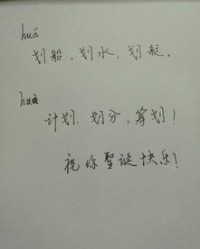 huá
划船，划水，划艇。
huà
计划，划分，筹划！
祝你圣诞快乐！